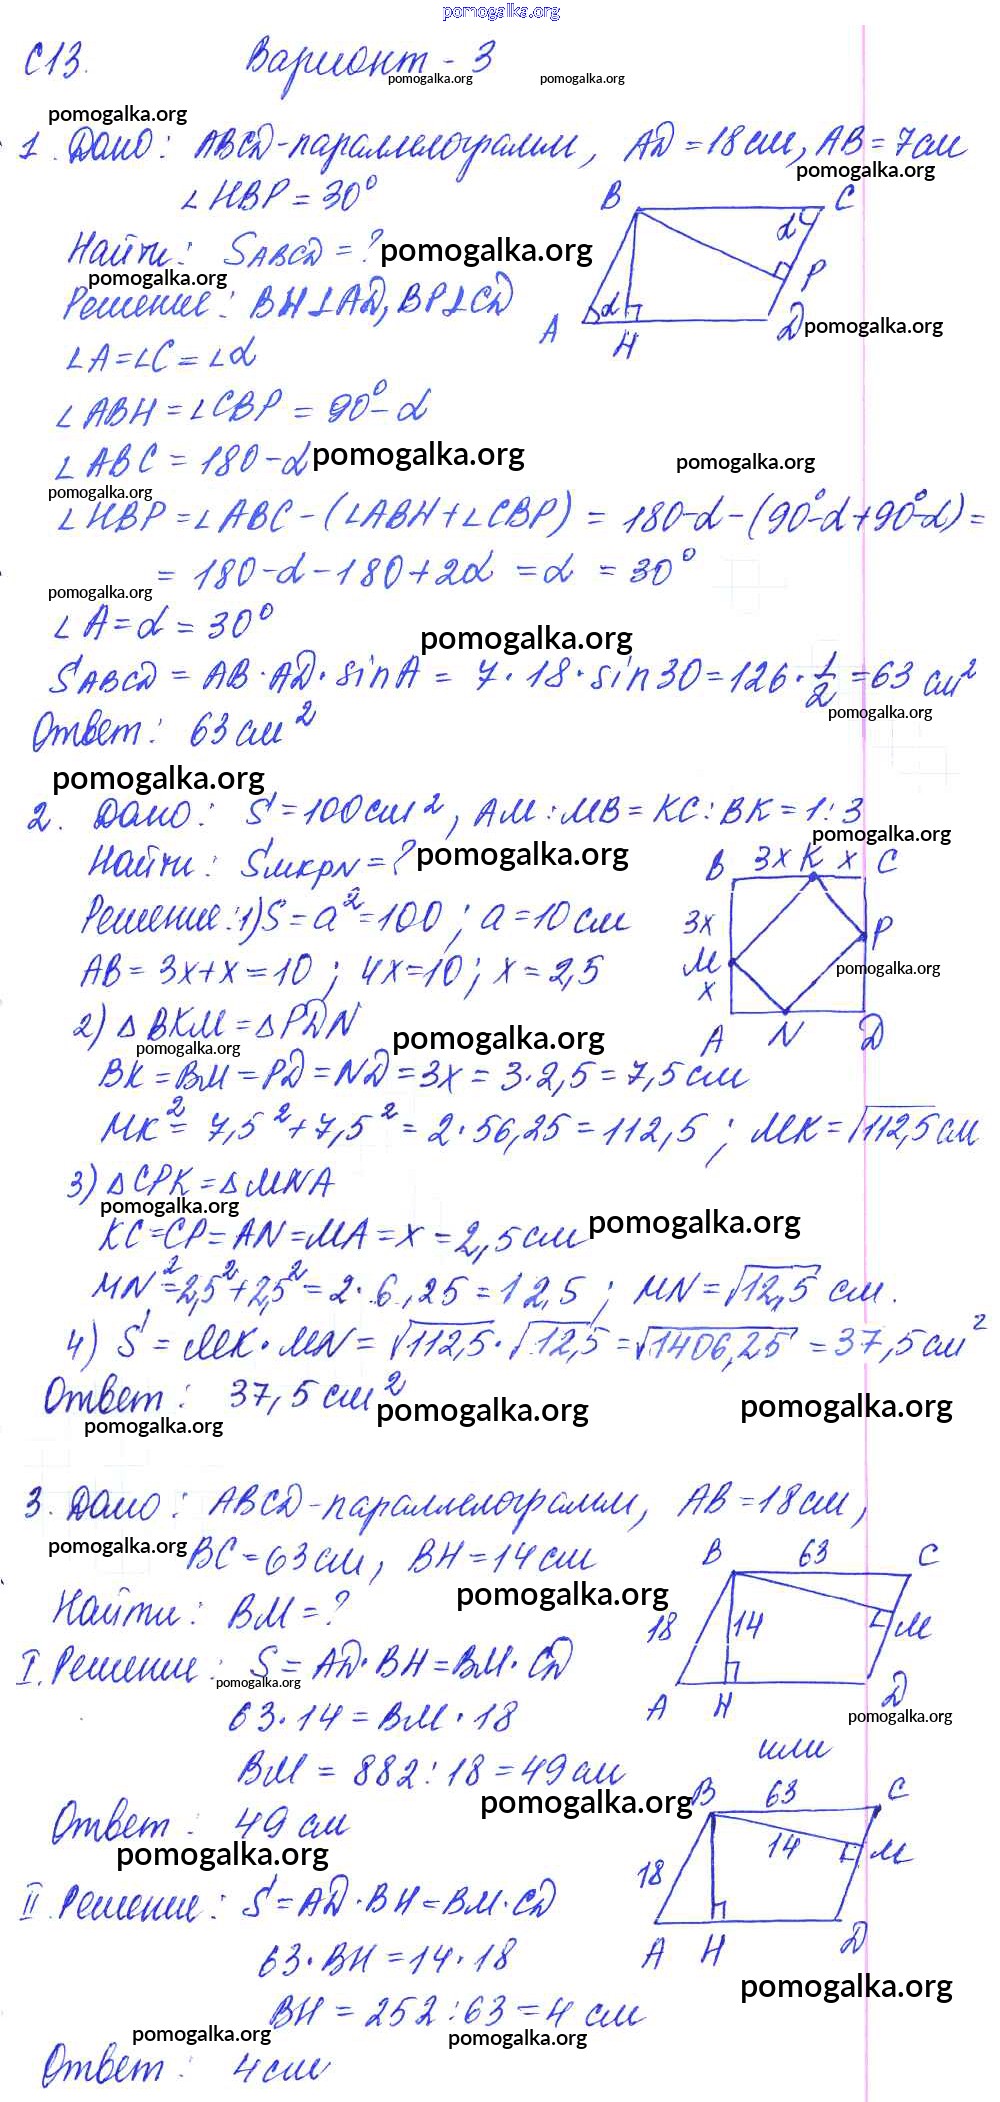 pomogalka.org
С13. Вариант - 3
pomogalka.org pomogalka.org
pomogalka.org
1. Дано: ABCD-параллелограмм, AD = 18 см, AB = 7 см
pomogalka.org
∠HBP = 30°
B C
α
P
A α H D
Найти: SABCD = ? pomogalka.org
pomogalka.org
Решение: BH⊥AD, BP⊥CD
pomogalka.org
∠A = ∠C = ∠α
∠ABH = ∠CBP = 90° - α
∠ABC = 180 - α pomogalka.org
pomogalka.org
pomogalka.org
∠HBP = ∠ABC - (∠ABH + ∠CBP) = 180 - α - (90° - α + 90° - α) =
= 180 - α - 180 + 2α = α = 30°
pomogalka.org
∠A = α = 30°
pomogalka.org
SABCD = AB · AD · sin A = 7 · 18 · sin 30 = 126 · 1/2 = 63 см²
pomogalka.org
Ответ: 63 см²
pomogalka.org
2. Дано: S = 100 см², AM : MB = KC : BK = 1 : 3
pomogalka.org
Найти: SMKPN = ? pomogalka.org
B 3x K x C
3x
P
M
x
A N D
Решение: 1) S = a² = 100; a = 10 см
AB = 3x + x = 10; 4x = 10; x = 2,5
pomogalka.org
2) △BKM = △PDN
pomogalka.org
pomogalka.org
BK = BM = PD = ND = 3x = 3 · 2,5 = 7,5 см
MK² = 7,5² + 7,5² = 2 · 56,25 = 112,5; MK = √112,5 см
3) △CPK = △MNA
pomogalka.org
pomogalka.org
KC = CP = AN = MA = x = 2,5 см
MN² = 2,5² + 2,5² = 2 · 6,25 = 12,5; MN = √12,5 см.
4) S = MK · MN = √112,5 · √12,5 = √1406,25 = 37,5 см²
Ответ: 37,5 см²
pomogalka.org pomogalka.org
pomogalka.org
3. Дано: ABCD-параллелограмм, AB = 18 см,
pomogalka.org
BC = 63 см, BH = 14 см
pomogalka.org
B 63 C
18 14 M
A H D
Найти: BM = ?
I. Решение: S = AD · BH = BM · CD
pomogalka.org
pomogalka.org
63 · 14 = BM · 18
или
BM = 882 : 18 = 49 см
pomogalka.org
B 63 C
14 M
18
A H D
Ответ: 49 см
pomogalka.org
II. Решение: S = AD · BH = BM · CD
63 · BH = 14 · 18
pomogalka.org
BH = 252 : 63 = 4 см
pomogalka.org pomogalka.org
Ответ: 4 см